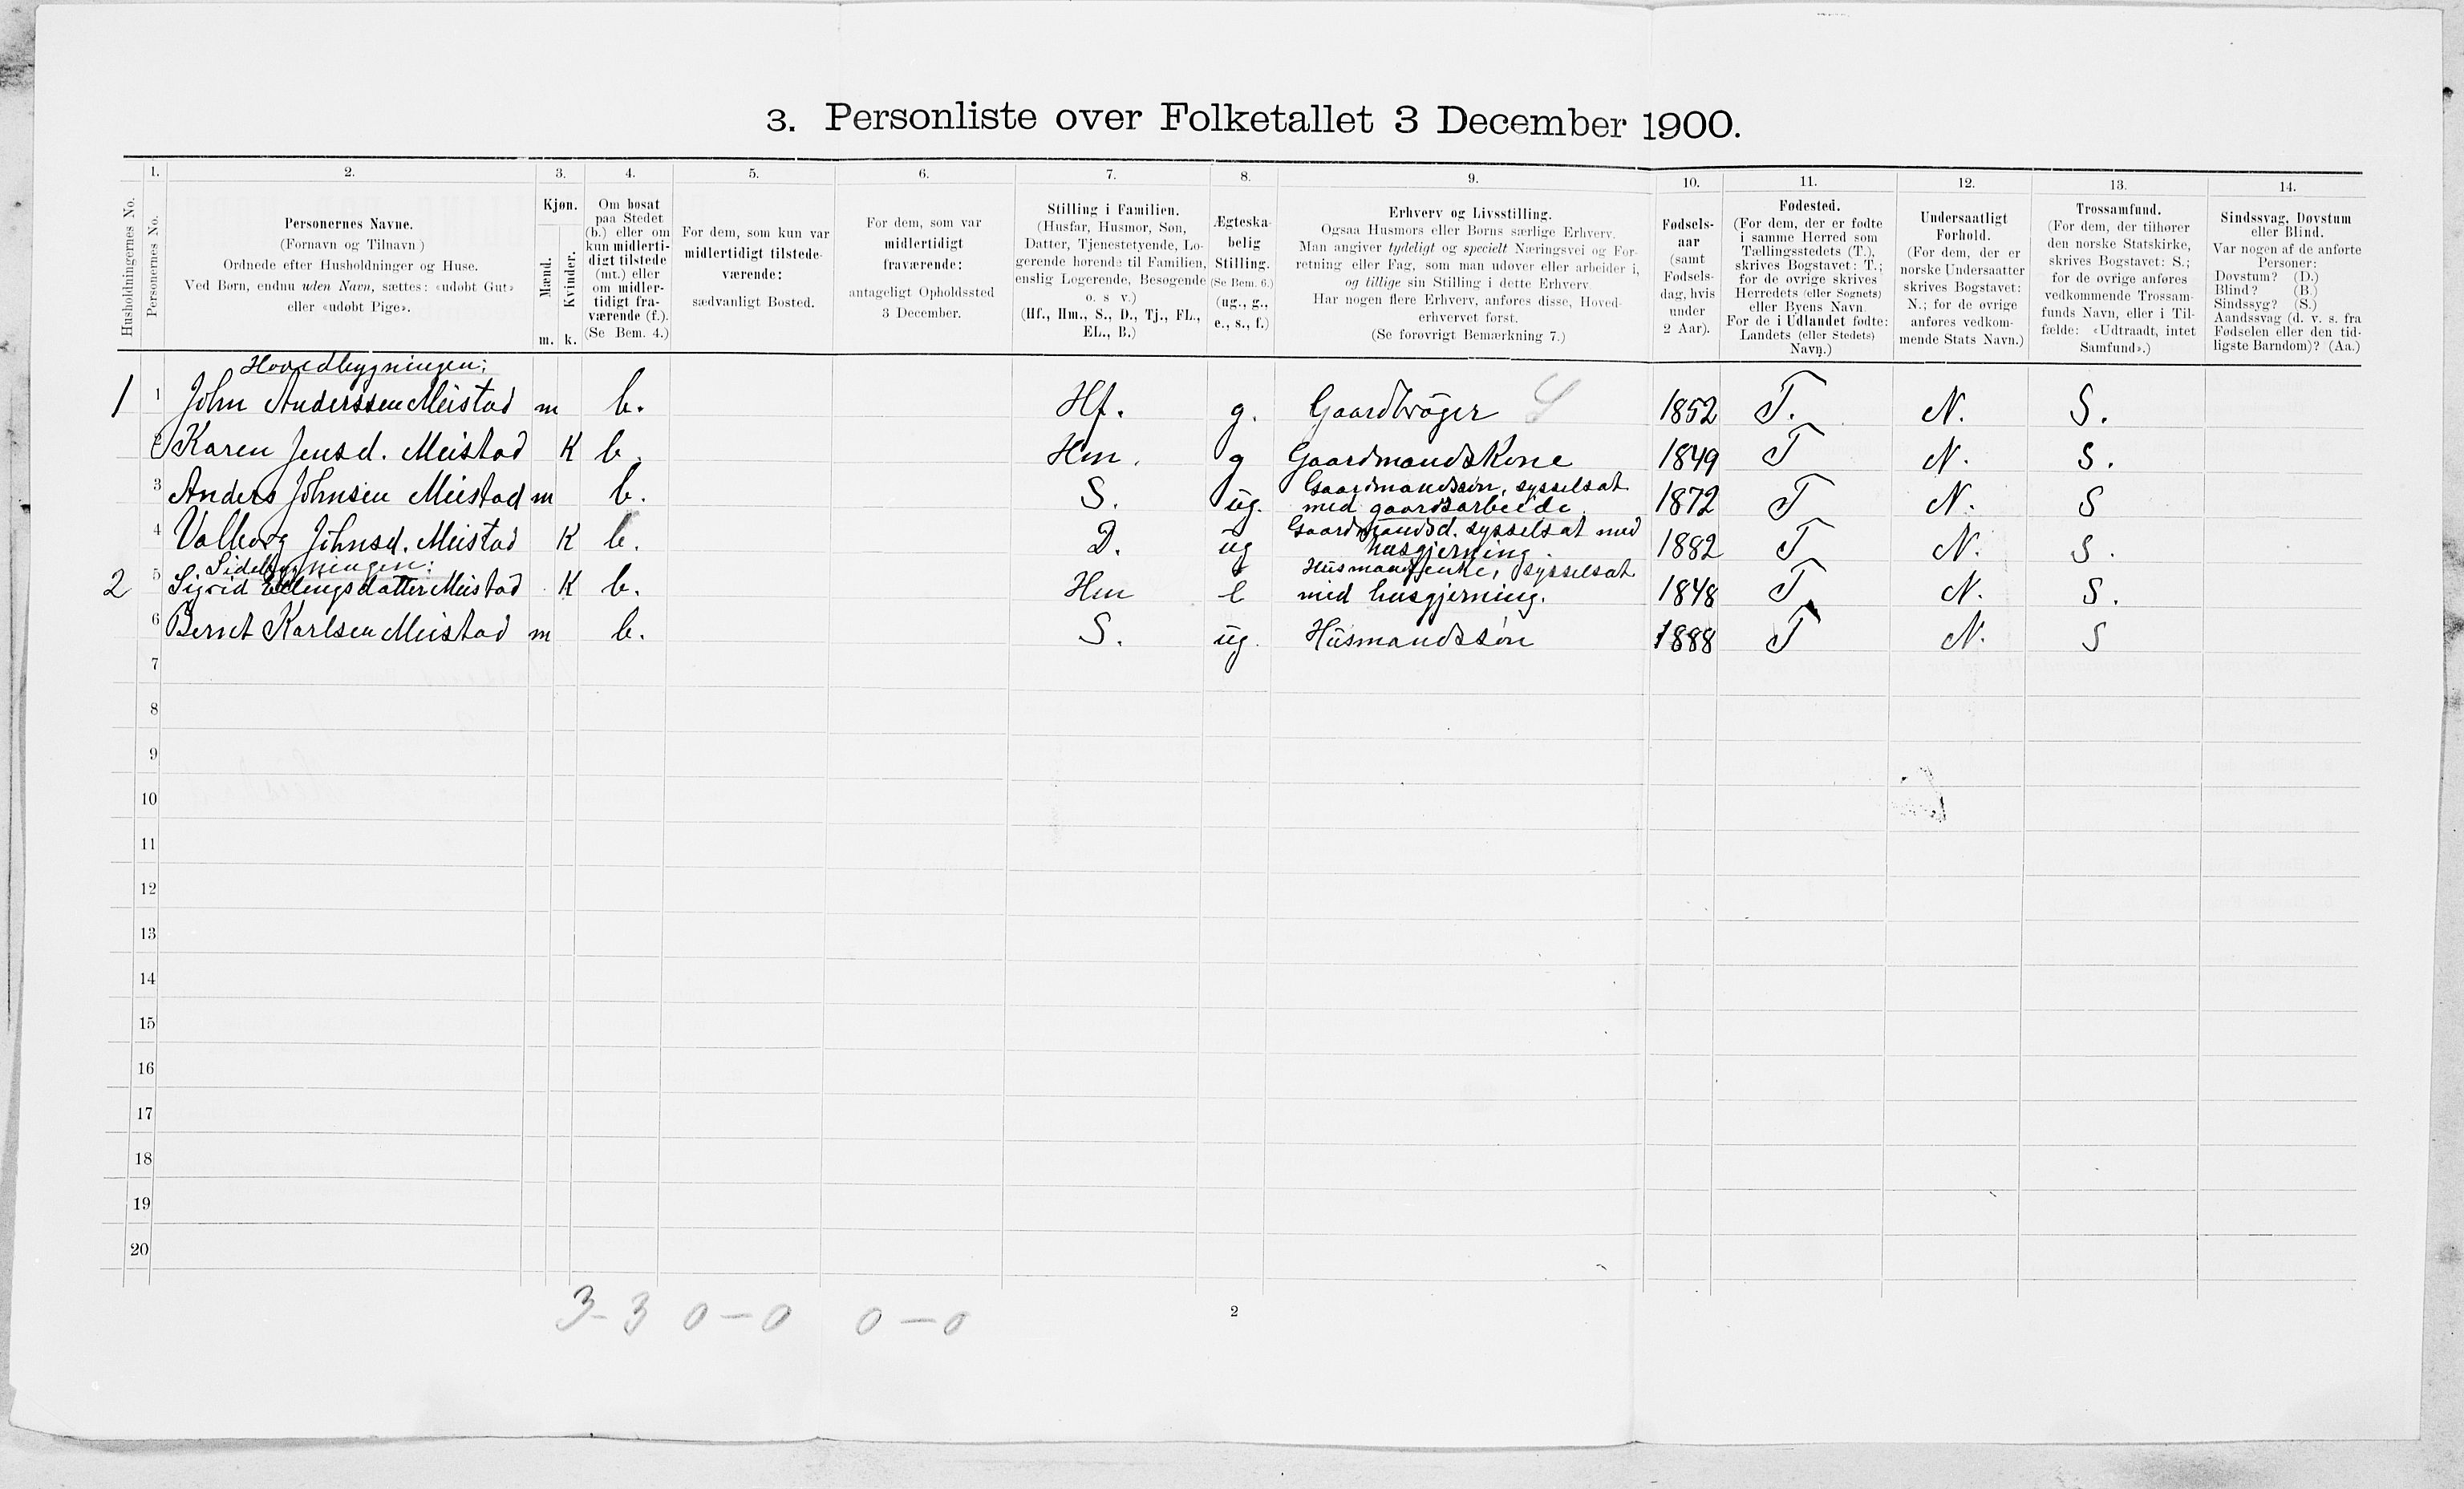 3. Personliste over Folketallet 3 December 1900.
1. 2. 3. 4. 5. 6. 7. 8. 9. 10. 11. 12. 13. 14.
Husholdningernes No.
Personernes No.
Personernes Navne.
(Fornavn og Tilnavn.)
Ordnede efter Husholdninger og Huse.
Ved Børn, endnu uden Navn, sættes: «udøbt Gut»
eller «udøbt Pige».
Kjøn.
Mænd.
Kvinder.
m. k.
Om bosat
paa Stedet
(b.) eller om
kun midlerti-
digt tilstede
(mt.) eller
om midler-
tidigt fra-
værende (f.).
(Se Bem. 4.)
For dem, som kun var
midlertidigt tilstede-
værende:
sædvanligt Bosted.
For dem, som var
midlertidigt
fraværende:
antageligt Opholdssted
3 December.
Stilling i Familien.
(Husfar, Husmor, Søn,
Datter, Tjenestetyende, Lo-
gerende hørende til Familien,
enslig Logerende, Besøgende
o. s v.)
(Hf., Hm., S., D., Tj., FL.,
EL., B.)
Ægteska-
belig
Stilling.
(Se Bem. 6.)
(ug., g.,
e., s., f.)
Erhverv og Livsstilling.
Ogsaa Husmors eller Børns særlige Erhverv.
Man angiver tydeligt og specielt Næringsvei og For-
retning eller Fag, som man udøver eller arbeider i,
og tillige sin Stilling i dette Erhverv
Har nogen flere Erhverv, anføres disse, Hoved-
erhvervet først.
(Se forøvrigt Bemærkning 7.)
Fødsels-
aar
(samt
Fødsels-
dag, hvis
under
2 Aar).
Fødested.
(For dem, der er fødte
i samme Herred som
Tællingsstedets (T.),
skrives Bogstavet: T.;
for de øvrige skrives
Herredets (eller Sognets)
eller Byens Navn.
For de i Udlandet fødte:
Landets (eller Stedets)
Navn.)
Undersaatligt
Forhold.
(For dem, der er
norske Undersaatter
skrives Bogstavet:
N.; for de øvrige
anføres vedkom-
mende Stats Navn.)
Trossamfund.
(For dem, der tilhører
den norske Statskirke,
skrives Bogstavet: S.;
for de øvrige anføres
vedkommende Trossam-
funds Navn, eller i Til-
fælde: «Udtraadt, intet
Samfund».)
Sindssvag, Døvstum
eller Blind.
Var nogen af de anførte
Personer:
Døvstum? (D.)
Blind? (B.)
Sindssyg? (S.)
Aandssvag (d. v. s. fra
Fødselen eller den tid-
ligste Barndom)? (Aa.)
Hovedbygningen:
1 1 John Anderssen Meistad m b. Hf. g. Gaardbrüger S 1852 T. N. S.
2 Karen Jensd. Meistad K b. Hm. g Gaardmandskone 1849 T N. S.
3 Anders Johnsen Meistad m b. S. ug. Gaardmandssøn, sysselsat
med gaardsarbeide. 1872 T N. S
4 Valborg Johnsd. Meistad K b. D. ug Gaardmandsd. sysselsat med
husgjerning. 1882 T N. S.
Sidebygningen:
2 5 Sigrid Ellingsdatter Meistad K b. Hm e Husmandsenke, sysselsat
med husgjerning. 1848 T. N. S.
6 Bernt Karlsen Meistad m b. S. ug. Husmandssøn 1888 T N. S
7
8
9
10
11
12
13
14
15
16
17
18
19
20
3-3 0-0 0-0
2